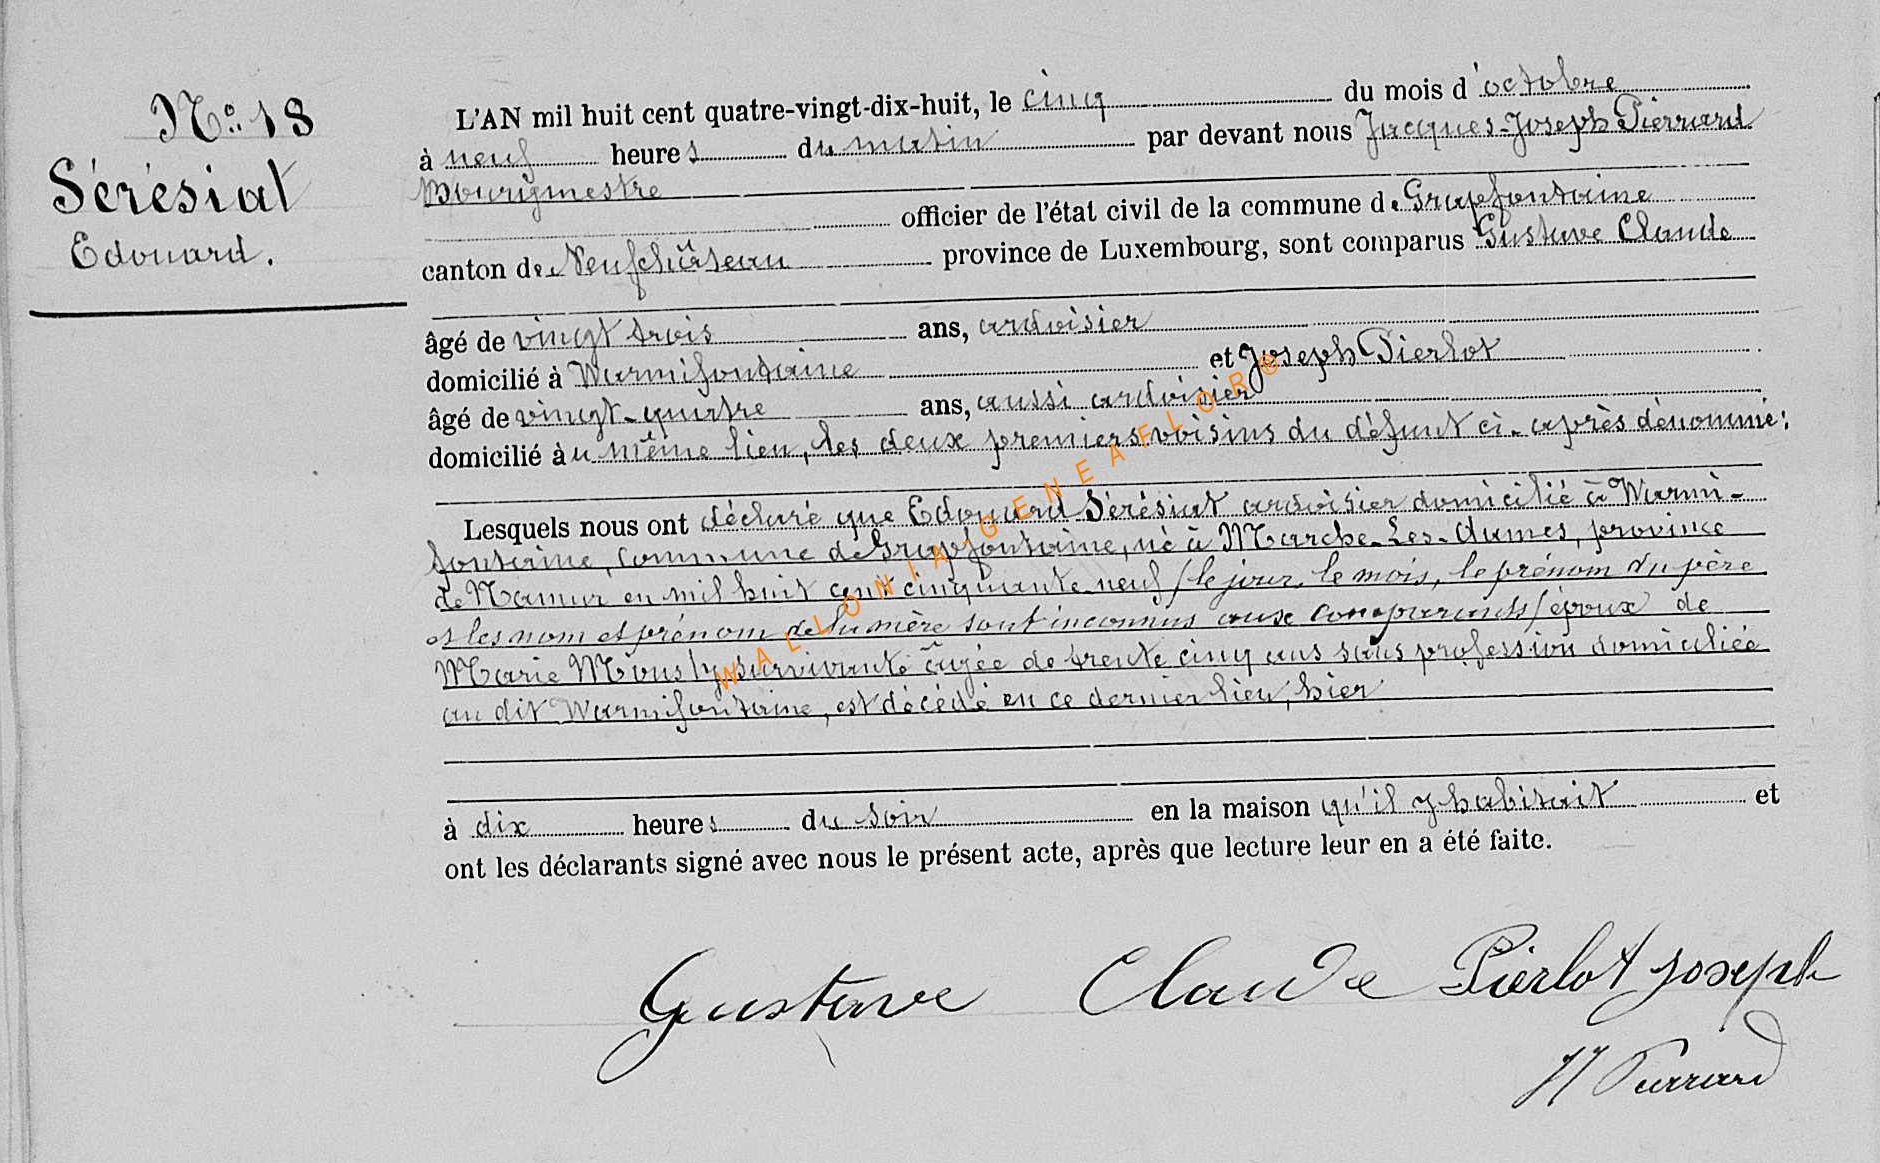 Nº 18
Sérésiat
Edouard.
L'AN mil huit cent quatre-vingt-dix-huit, le cinq du mois d'octobre
à neuf heures du matin par devant nous Jacques-Joseph Pierrard
Bourgmestre
officier de l'état civil de la commune de Grapfontaine
canton de Neufchâteau province de Luxembourg, sont comparus Gustave Claude
âgé de vingt trois ans, ardoisier
domicilié à Warmifontaine et Joseph Pierlot
âgé de vingt-quatre ans, aussi ardoisier
domicilié au même lieu, les deux premiers voisins du défunt ci-après dénommé;
Lesquels nous ont déclaré que Edouard Sérésiat ardoisier domicilié à Warmi-
fontaine, commune de Grapfontaine, né à Marche-Les-Dames, province
de Namur en mil huit cent cinquante neuf (le jour, le mois, le prénom du père
et les nom et prénom de la mère sont inconnus aux comparants) époux de
Marie survivante âgée de trente cinq ans sans profession domiciliée
au dit Warmifontaine, est décédé en ce dernier lieu, hier
à dix heures du soir en la maison qu'il y habitait et
ont les déclarants signé avec nous le présent acte, après que lecture leur en a été faite.
Gustave Claude Pierlot Joseph
JJ Pierrard
WALLONIA-GENEAFLOR®